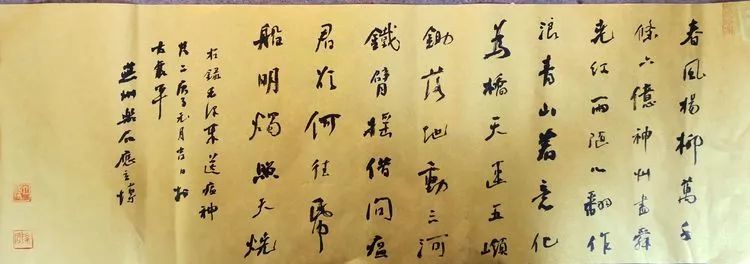 春風楊柳萬千
條六億神州盡舜
尧红雨随心翻作
浪青山著意化
為橋天連五嶺
鋤落地動三河
鐵臂摇借問瘟
君欲何往紙
船明燭照天燒
右録毛泽東送瘟神
其二庚子元月吉日於
古襄平